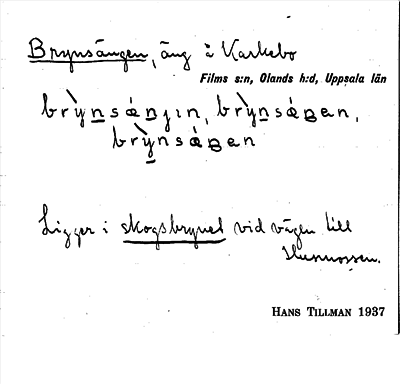 Brynsängen, äng i Karkebo
Films s:n, Olands h:d, Uppsala län
brỳnsáŋjın, brỳnsáŋen,
brỳnsáŋen
Ligger i skogsbrynet vid vägen till
Husmossen.
HANS TILLMAN 1937